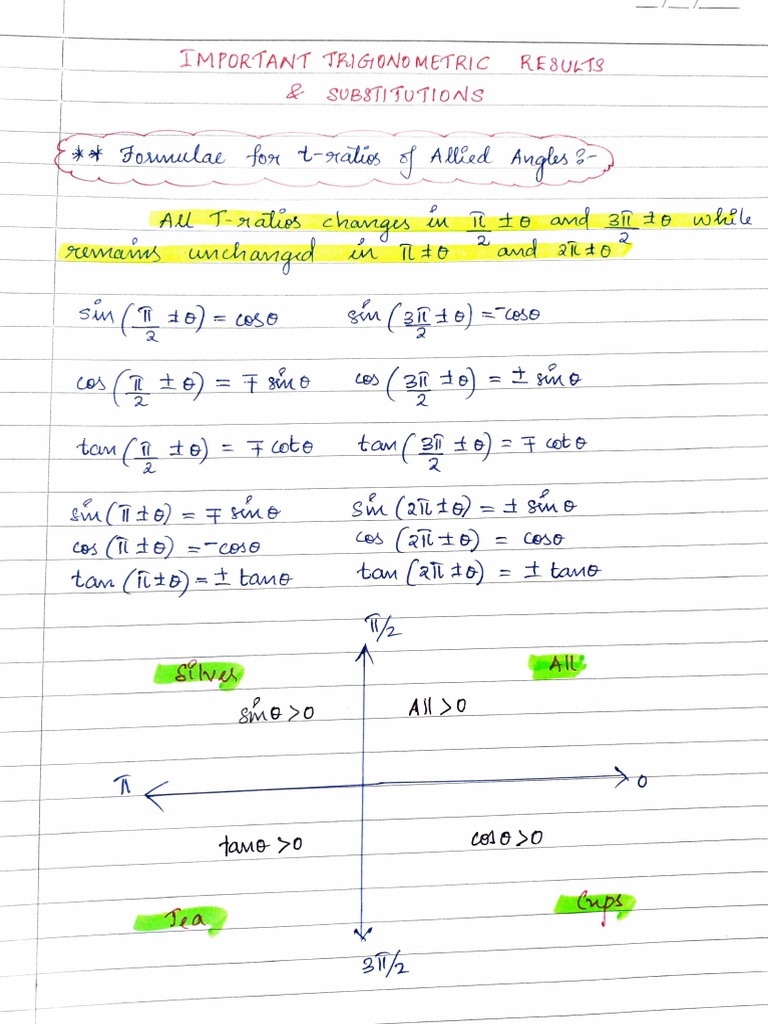 IMPORTANT TRIGONOMETRIC RESULTS
& SUBSTITUTIONS
** Formulae for t-ratios of Allied Angles :-
All T-ratios changes in π/2 ± θ and 3π/2 ± θ while
remains unchanged in π ± θ and 2π ± θ
sin(π/2 ± θ) = cosθ sin(3π/2 ± θ) = -cosθ
cos(π/2 ± θ) = ∓ sinθ cos(3π/2 ± θ) = ± sinθ
tan(π/2 ± θ) = ∓ cotθ tan(3π/2 ± θ) = ∓ cotθ
sin(π ± θ) = ∓ sinθ sin(2π ± θ) = ± sinθ
cos(π ± θ) = -cosθ cos(2π ± θ) = cosθ
tan(π ± θ) = ± tanθ tan(2π ± θ) = ± tanθ
π/2
Silver All
sinθ > 0 All > 0
π 0
tanθ > 0 cosθ > 0
Tea Cups
3π/2